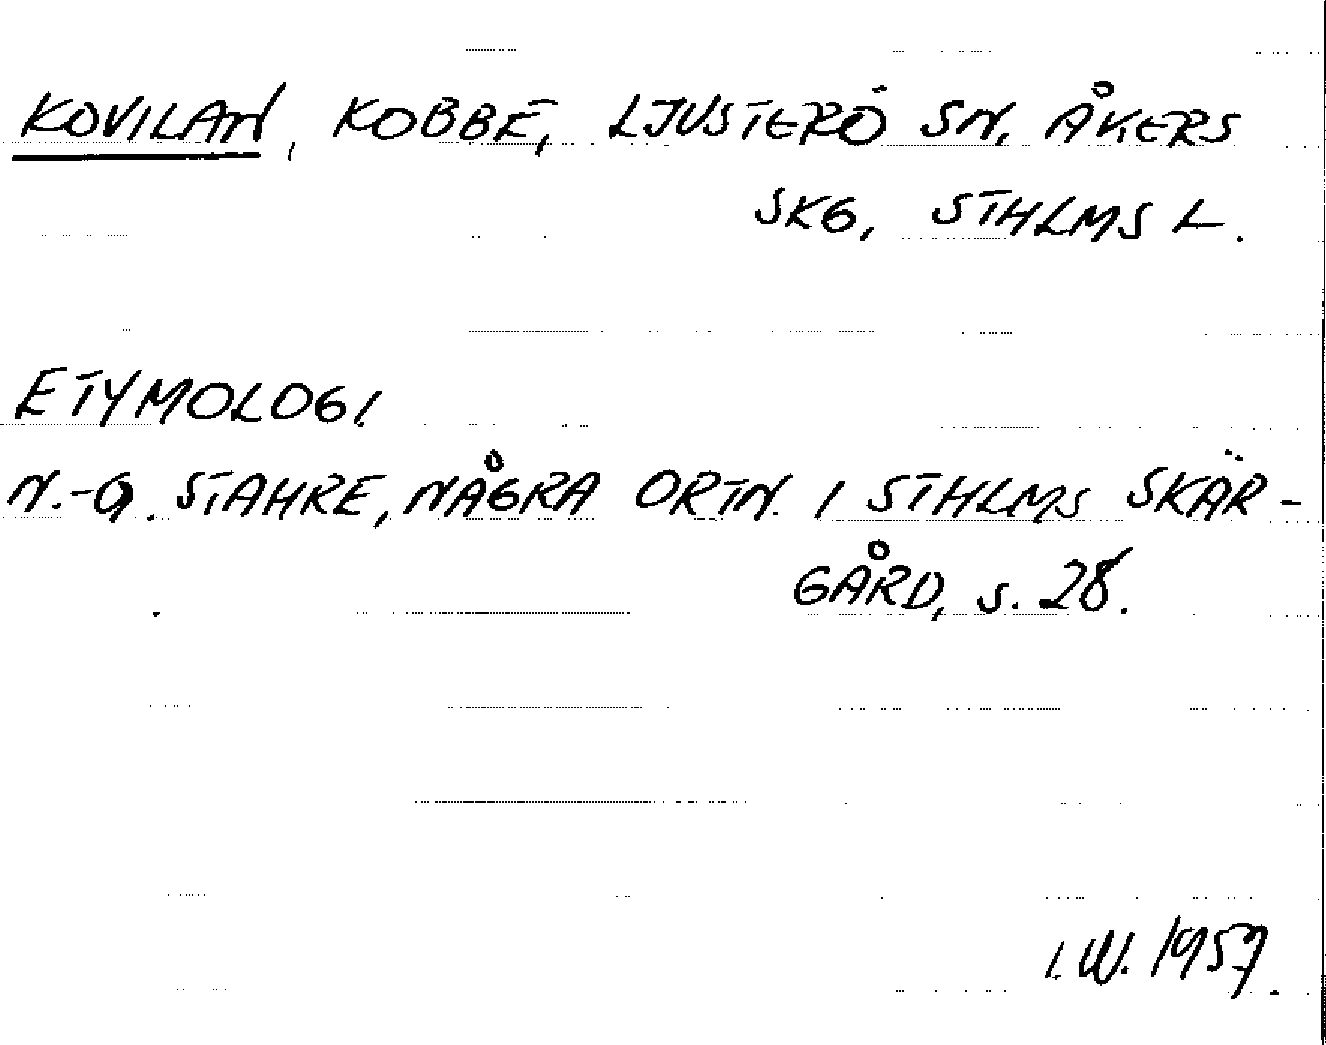 KOVILAN, KOBBE, LJUSTERÖ SN, ÅKERS
SKG, STHLMS L.
ETYMOLOGI.
N.-G. STAHRE, NÅGRA ORTN. I STHLMS SKÄR-
GÅRD, s. 28.
I.W. 1957.